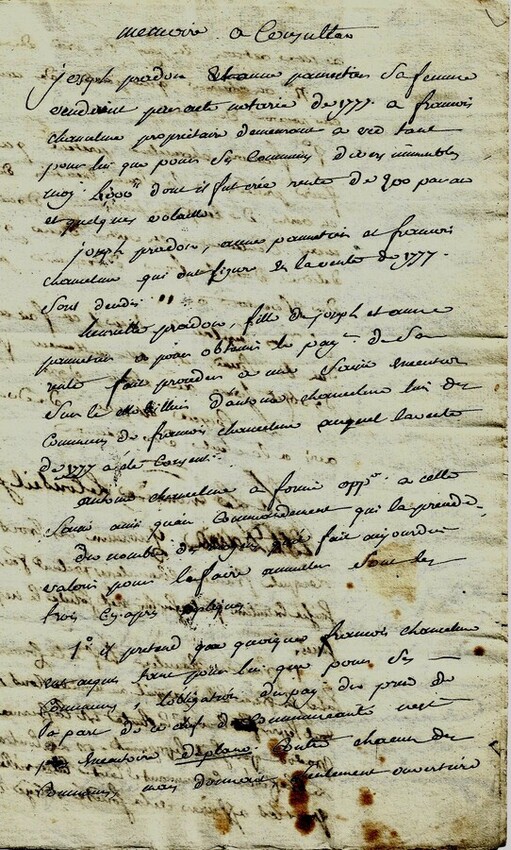 memoire a Consulter
joseph pradon et anne pannetier sa femme
vendirent par acte notarié de 1777. a francois
chanceline propriétaire demeurant a vid tant
pour lui que pour ses Communs, divers immeubles
dont il fut crée rente de 200 par an
et quelques volaille.
joseph pradon, anne pannetier et francois
chanceline qui ont figuré en la vente de 1777.
sont dendés.
pradon, fille de joseph et anne
pannetier a pour obtenir le pay.t de sa
rente fait proceder a une saisie execution
sur le mobillier d'antoine chanceline lui des
Communs de francois chanceline auquel la vente
de 1777 a été Consent.
antoine chanceline a formé opp.on a cette
saisie ainsi quau Commandement qui la precede.
du nombre des fait aujourdui
valoir pour la faire annuler sont les
trois cy apres expliqués
1.o il pretend que quoique francois chanceline
eut acquis tant pour lui que pour ses
Communs, l'obligation du pay. du prix de
la part de ce chef de Communauté n'est
pas executoire de plano. Contre chacun des
Communs mais donnent seulement ouverture